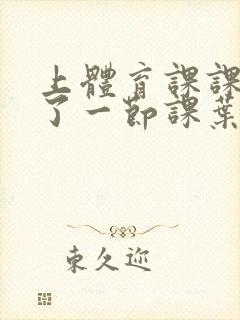 上體育課課
了一節課葉
束久迩